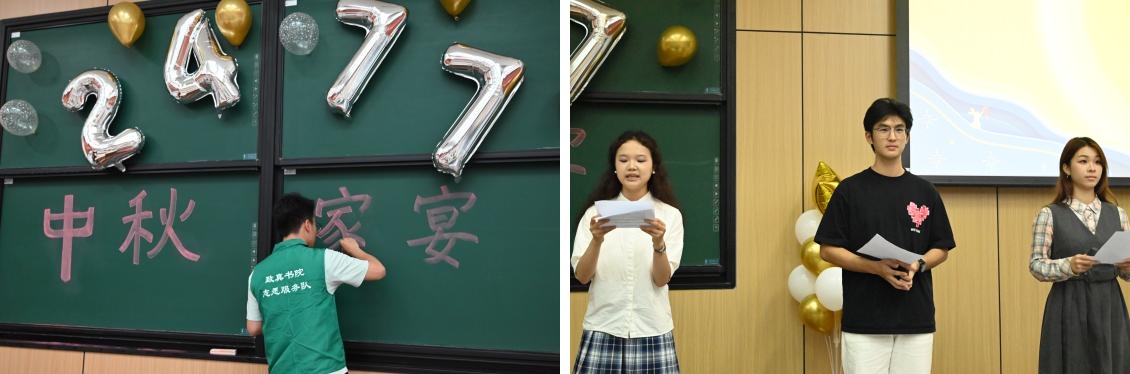 2477
中秋家宴
致真书院
志愿服务队